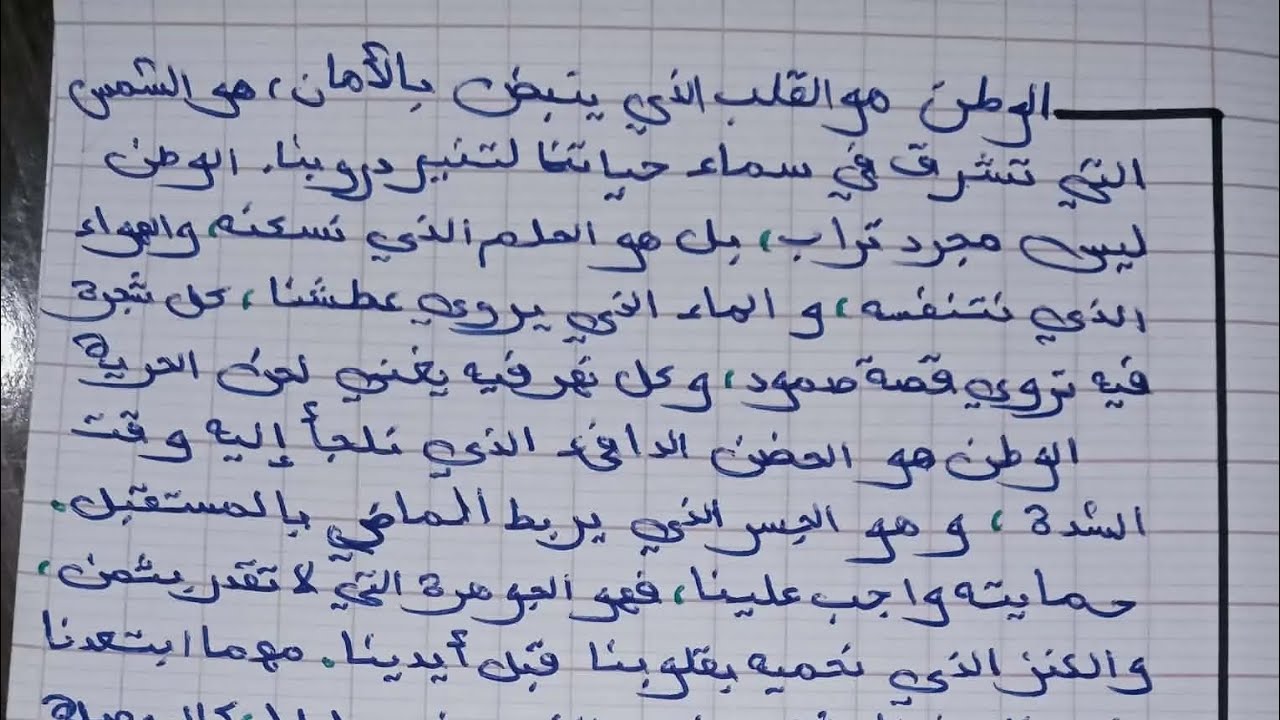 الوطن هو القلب الذي ينبض بالأمان، هو الشمس
التي تشرق في سماء حياتنا لتنير دروبنا. الوطن
ليس مجرد تراب، بل هو الحلم الذي نسكنه، والهواء
الذي نتنفسه، و الماء الذي يروي عطشنا، كل شجرة
فيه تروي قصة صمود، و كل نهر فيه يغني لحن الحرية
الوطن هو الحضن الدافئ الذي نلجأ إليه وقت
الشدة، و هو الجسر الذي يربط الماضي بالمستقبل.
حمايته واجب علينا، فهو الجوهرة التي لا تقدر بثمن،
والكنز الذي نحميه بقلوبنا قبل أيدينا. مهما ابتعدنا